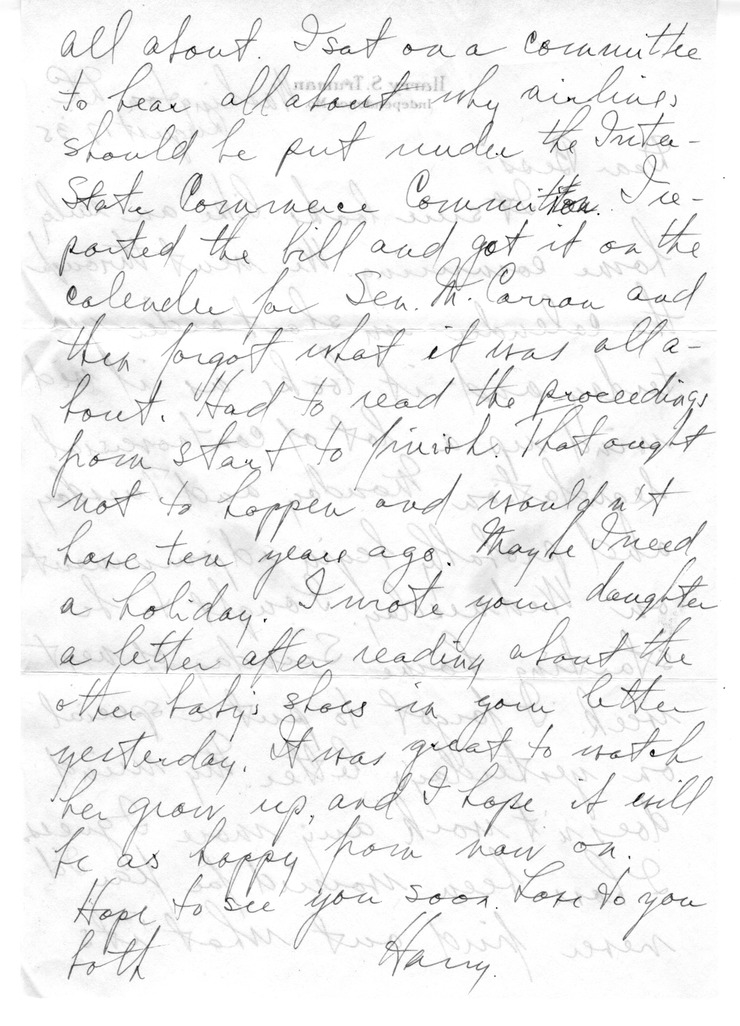 all about. I sat on a committee
to hear all about why airlines
should be put under the Inter-
State Commerce Commission. I re-
ported the bill and got it on the
calender for Sen. McCarran and
then forgot what it was all a-
bout. Had to read the proceedings
from start to finish. That ought
not to happen and wouldn't
have ten years ago. Maybe I need
a holiday. I wrote your daughter
a letter after reading about the
other baby's shoes in your letter
yesterday. It was great to watch
her grow up, and I hope it will
be as happy from now on.
Hope to see you soon. Love to you
both Harry.
Harry S. Truman